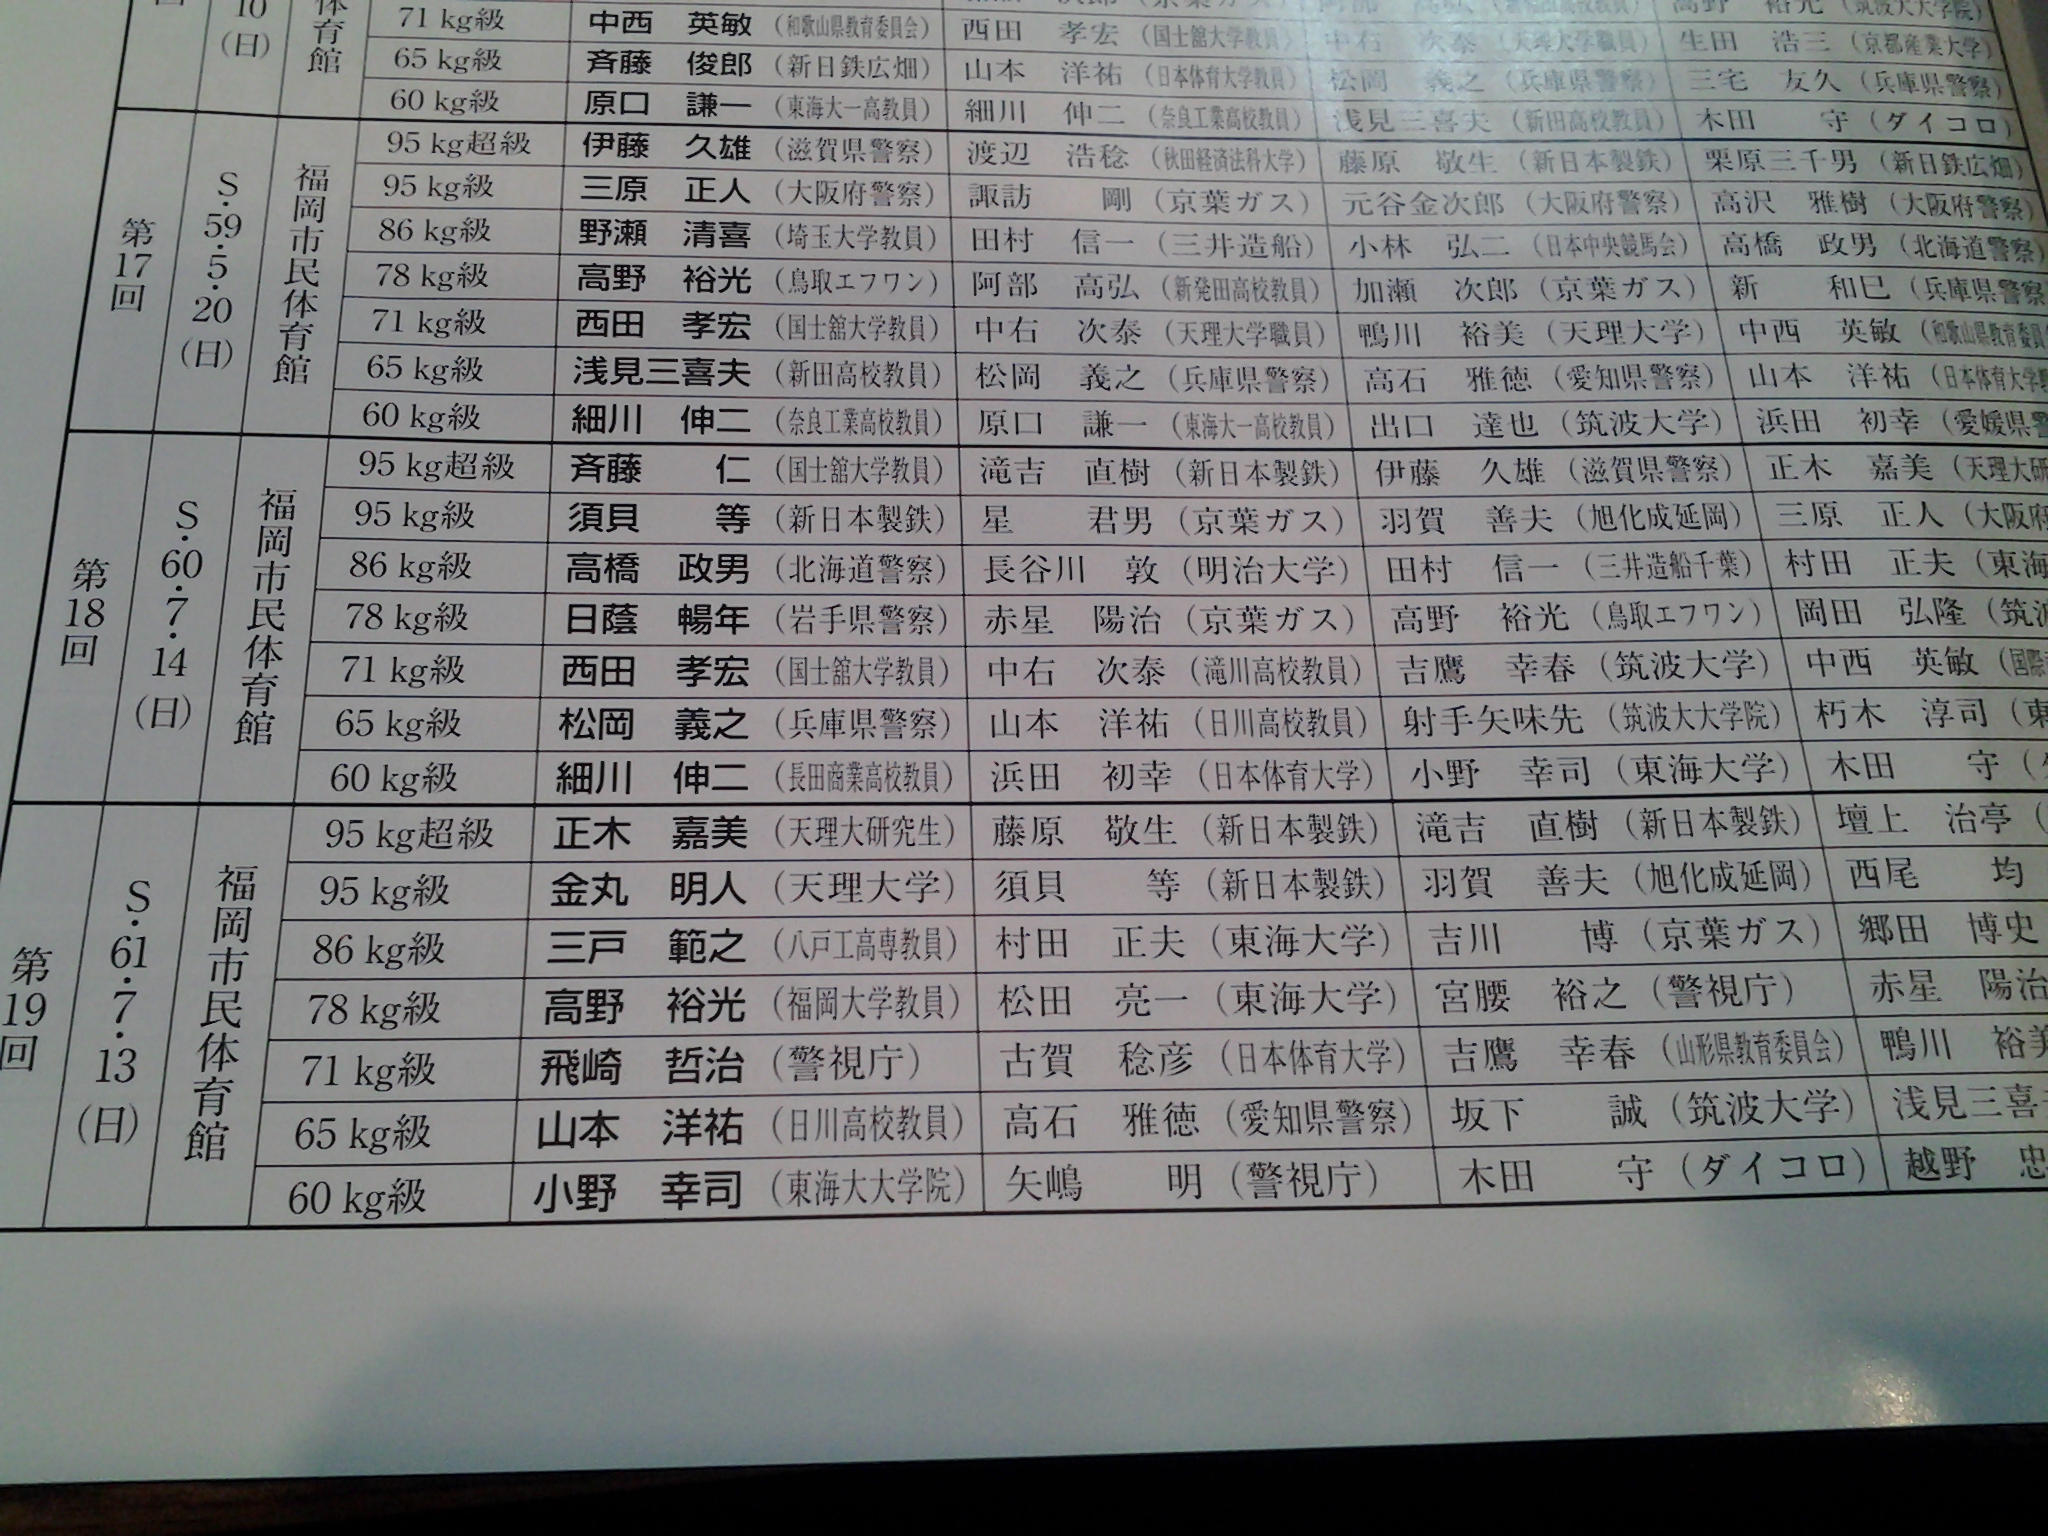 10
(日)
体育館
71 kg級 中西 英敏 (和歌山県教育委員会) 西田 孝宏 (国士舘大学教員) 中右 次泰 (天理大学職員) 生田 浩三 (京都産業大学)
65 kg級 斉藤 俊郎 (新日鉄広畑) 山本 洋祐 (日本体育大学教員) 松岡 義之 (兵庫県警察) 三宅 友久 (兵庫県警察)
60 kg級 原口 謙一 (東海大一高教員) 細川 伸二 (奈良工業高校教員) 浅見三喜夫 (新田高校教員) 木田 守 (ダイコロ)
第17回
S・59・5・20(日)
福岡市民体育館
95 kg超級 伊藤 久雄 (滋賀県警察) 渡辺 浩稔 (秋田経済法科大学) 藤原 敬生 (新日本製鉄) 栗原三千男 (新日鉄広畑)
95 kg級 三原 正人 (大阪府警察) 諏訪 剛 (京葉ガス) 元谷金次郎 (大阪府警察) 高沢 雅樹 (大阪府警察)
86 kg級 野瀬 清喜 (埼玉大学教員) 田村 信一 (三井造船) 小林 弘二 (日本中央競馬会) 高橋 政男 (北海道警察)
78 kg級 高野 裕光 (鳥取エフワン) 阿部 高弘 (新発田高校教員) 加瀬 次郎 (京葉ガス) 新 和巳 (兵庫県警察
71 kg級 西田 孝宏 (国士舘大学教員) 中右 次泰 (天理大学職員) 鴨川 裕美 (天理大学) 中西 英敏 (和歌山県教育委員
65 kg級 浅見三喜夫 (新田高校教員) 松岡 義之 (兵庫県警察) 高石 雅徳 (愛知県警察) 山本 洋祐 (日本体育大学
60 kg級 細川 伸二 (奈良工業高校教員) 原口 謙一 (東海大一高校教員) 出口 達也 (筑波大学) 浜田 初幸 (愛媛県警
第18回
S・60・7・14(日)
福岡市民体育館
95 kg超級 斉藤 仁 (国士舘大学教員) 滝吉 直樹 (新日本製鉄) 伊藤 久雄 (滋賀県警察) 正木 嘉美 (天理大研
95 kg級 須貝 等 (新日本製鉄) 星 君男 (京葉ガス) 羽賀 善夫 (旭化成延岡) 三原 正人 (大阪府
86 kg級 高橋 政男 (北海道警察) 長谷川 敦 (明治大学) 田村 信一 (三井造船千葉) 村田 正夫 (東海
78 kg級 日蔭 暢年 (岩手県警察) 赤星 陽治 (京葉ガス) 高野 裕光 (鳥取エフワン) 岡田 弘隆 (筑波
71 kg級 西田 孝宏 (国士舘大学教員) 中右 次泰 (滝川高校教員) 吉鷹 幸春 (筑波大学) 中西 英敏 (国際
65 kg級 松岡 義之 (兵庫県警察) 山本 洋祐 (日川高校教員) 射手矢味先 (筑波大大学院) 朽木 淳司 (東
60 kg級 細川 伸二 (長田商業高校教員) 浜田 初幸 (日本体育大学) 小野 幸司 (東海大学) 木田 守 (
第19回
S・61・7・13(日)
福岡市民体育館
95 kg超級 正木 嘉美 (天理大研究生) 藤原 敬生 (新日本製鉄) 滝吉 直樹 (新日本製鉄) 壇上 治亭 (
95 kg級 金丸 明人 (天理大学) 須貝 等 (新日本製鉄) 羽賀 善夫 (旭化成延岡) 西尾 均
86 kg級 三戸 範之 (八戸工高専教員) 村田 正夫 (東海大学) 吉川 博 (京葉ガス) 郷田 博史
78 kg級 高野 裕光 (福岡大学教員) 松田 亮一 (東海大学) 宮腰 裕之 (警視庁) 赤星 陽治
71 kg級 飛崎 哲治 (警視庁) 古賀 稔彦 (日本体育大学) 吉鷹 幸春 (山形県教育委員会) 鴨川 裕美
65 kg級 山本 洋祐 (日川高校教員) 高石 雅徳 (愛知県警察) 坂下 誠 (筑波大学) 浅見三喜
60 kg級 小野 幸司 (東海大大学院) 矢嶋 明 (警視庁) 木田 守 (ダイコロ) 越野 忠